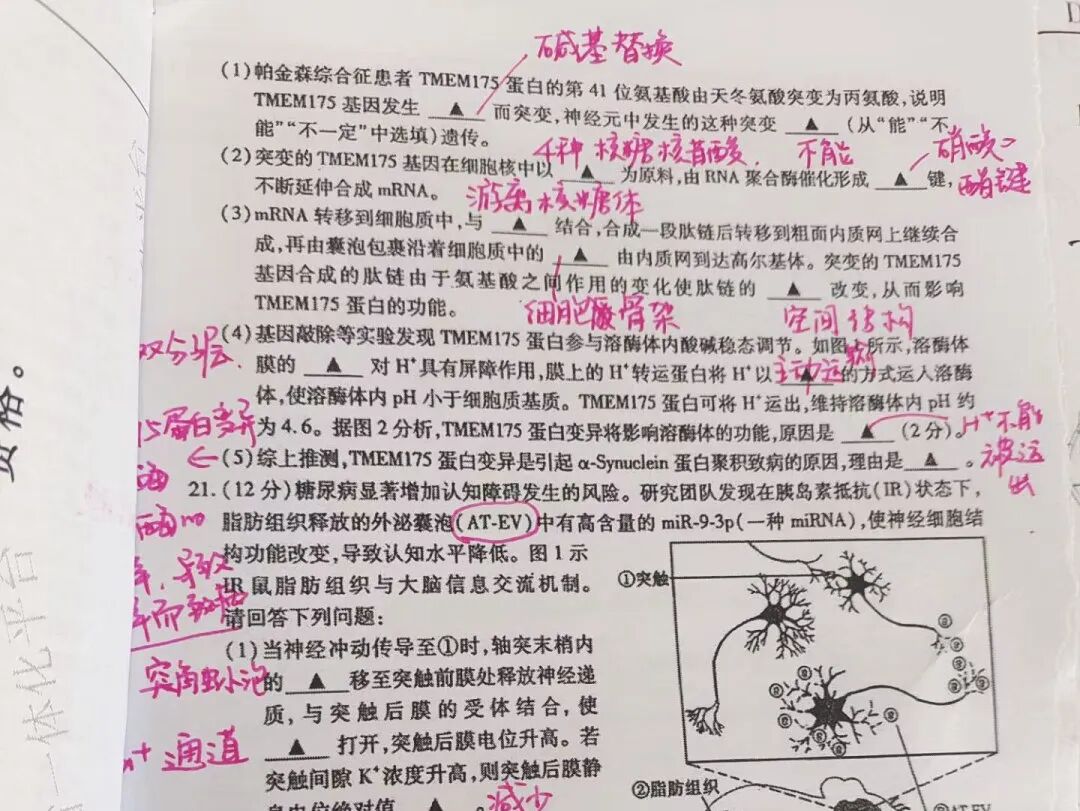 碱基替换
(1)帕金森综合征患者 TMEM175 蛋白的第 41 位氨基酸由天冬氨酸突变为丙氨酸,说明
TMEM175 基因发生 ▲ 而突变,神经元中发生的这种突变 ▲ (从“能”“不
能”“不一定”中选填)遗传。
4种核糖核苷酸. 不能
(2)突变的 TMEM175 基因在细胞核中以 ▲ 为原料,由 RNA 聚合酶催化形成 ▲ 键,
酯键
不断延伸合成 mRNA。
游离核糖体
(3)mRNA 转移到细胞质中,与 ▲ 结合,合成一段肽链后转移到粗面内质网上继续合
成,再由囊泡包裹沿着细胞质中的 ▲ 由内质网到达高尔基体。突变的 TMEM175
基因合成的肽链由于氨基酸之间作用的变化使肽链的 ▲ 改变,从而影响
TMEM175 蛋白的功能。
细胞骨架 空间结构
双分子层
(4)基因敲除等实验发现 TMEM175 蛋白参与溶酶体内酸碱稳态调节。如图 所示,溶酶体
膜的 ▲ 对 H⁺具有屏障作用,膜上的 H⁺转运蛋白将 H⁺以 ▲ 的方式运入溶酶
主动运输
体,使溶酶体内 pH 小于细胞质基质。TMEM175 蛋白可将 H⁺运出,维持溶酶体内 pH 约
为 4.6。据图 2 分析,TMEM175 蛋白变异将影响溶酶体的功能,原因是 ▲ (2 分)。
H⁺不能
被运
出
蛋白变异
(5)综上推测,TMEM175 蛋白变异是引起 α-Synuclein 蛋白聚积致病的原因,理由是 ▲ 。
21.(12 分)糖尿病显著增加认知障碍发生的风险。研究团队发现在胰岛素抵抗(IR)状态下,
脂肪组织释放的外泌囊泡(AT-EV)中有高含量的 miR-9-3p(一种 miRNA),使神经细胞结
构功能改变,导致认知水平降低。图 1 示
IR 鼠脂肪组织与大脑信息交流机制。
请回答下列问题:
导致
①突触
(1)当神经冲动传导至①时,轴突末梢内
的 ▲ 移至突触前膜处释放神经递
突触小泡
质,与突触后膜的受体结合,使
▲ 打开,突触后膜电位升高。若
通道
突触间隙 K⁺浓度升高,则突触后膜静
息电位绝对值 ▲ 。
减少
②脂肪组织
资格。
一体化平台